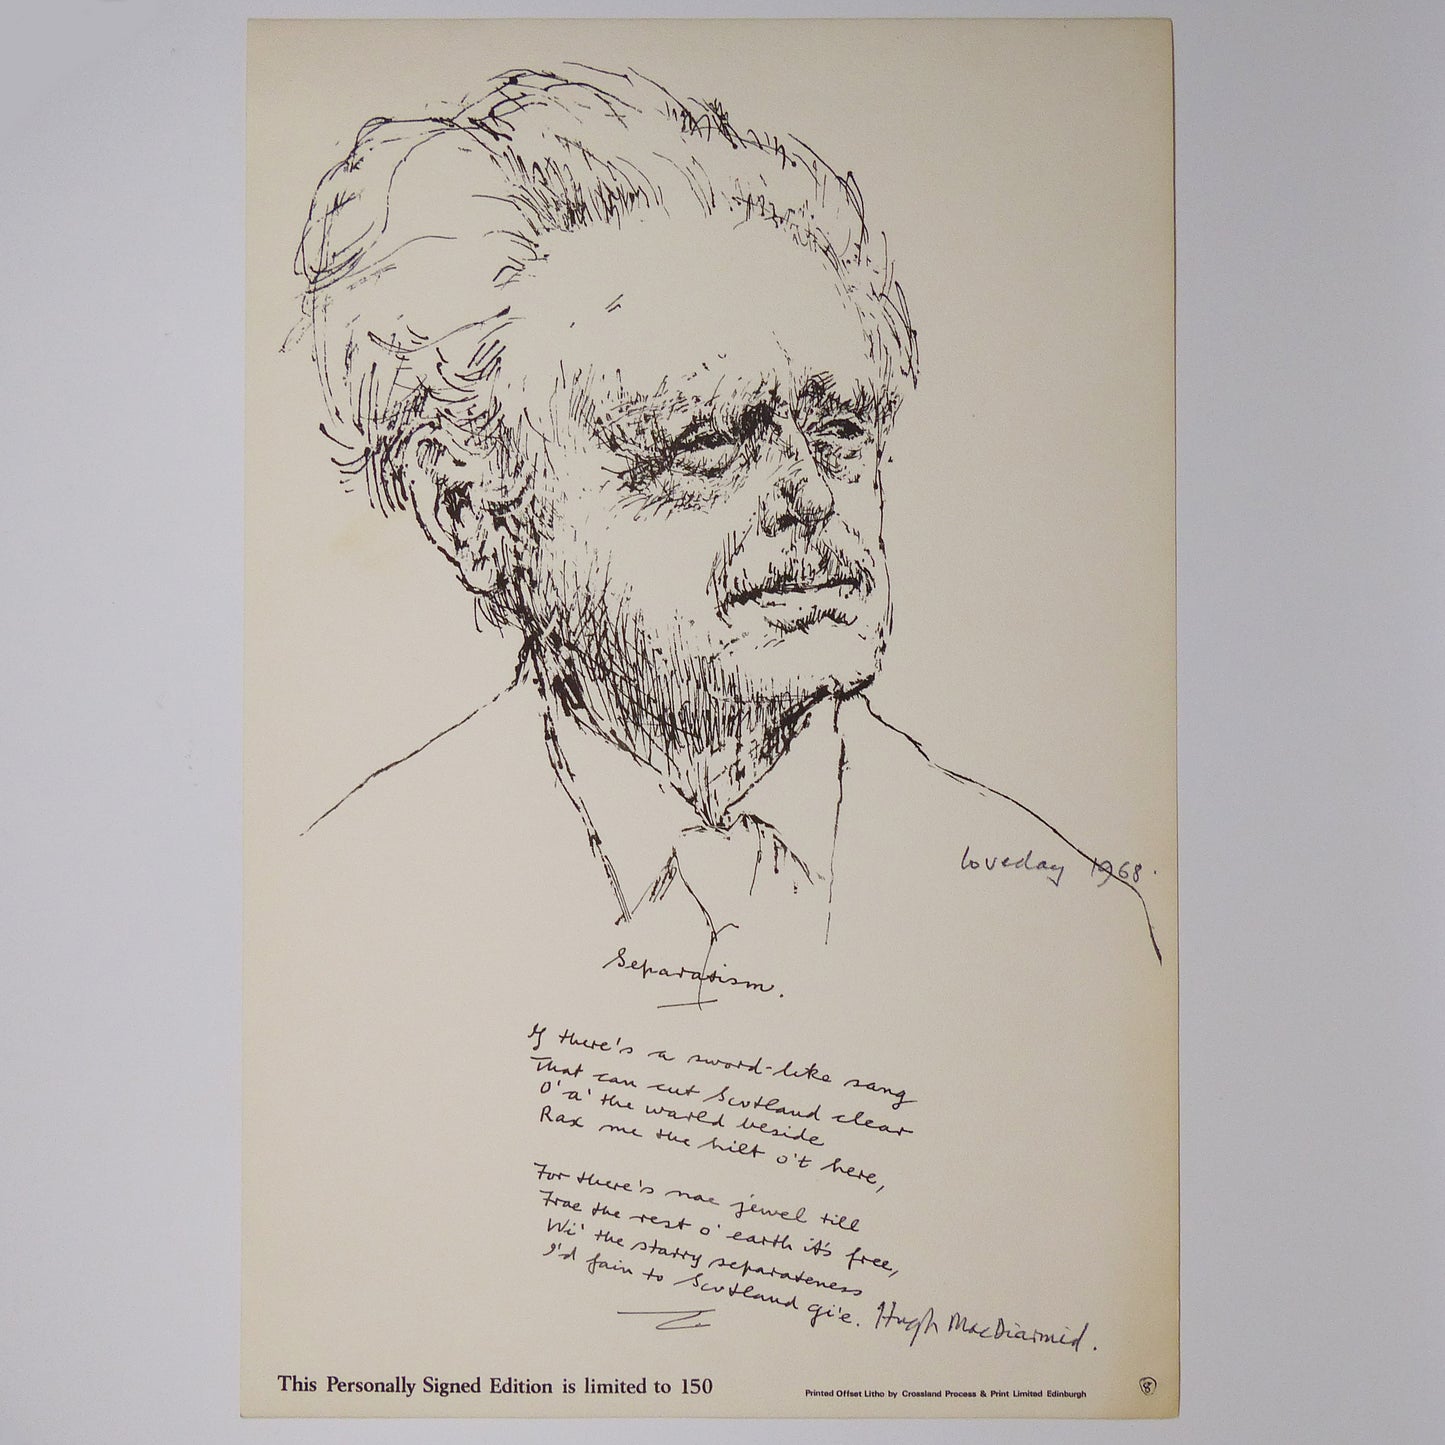 Loveday 1968.
Separatism.
If there's a sword-like sang
That can cut Scotland clear
O' a' the warld beside
Rax me the hilt o't here,
For there's nae jewel till
Frae the rest o' earth it's free,
Wi' the starry separateness
I'd fain to Scotland gi'e. Hugh MacDiarmid.
This Personally Signed Edition is limited to 150
Printed Offset Litho by Crossland Process & Print Limited Edinburgh
8